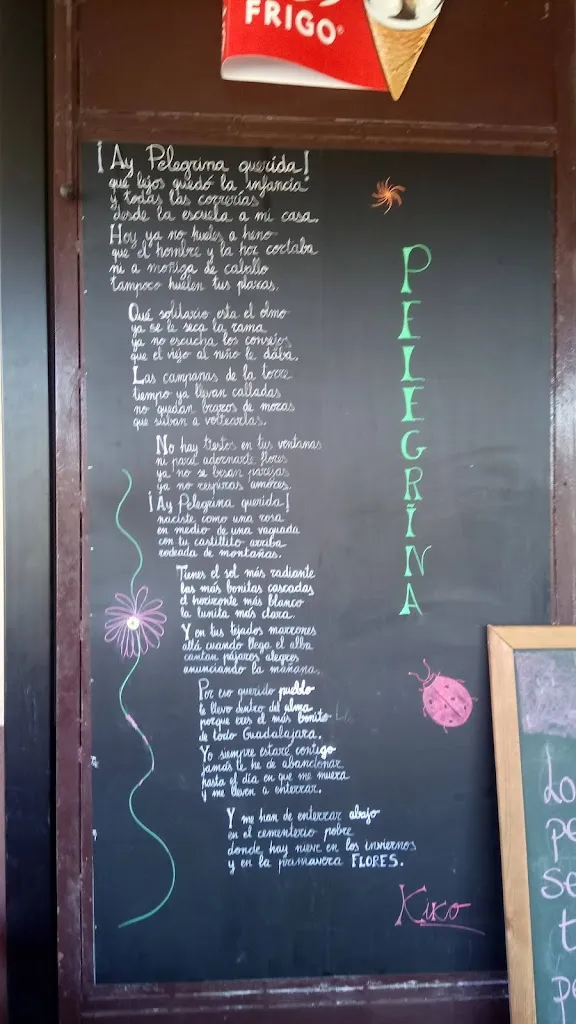 FRIGO
¡Ay Pelegrina querida!
qué lejos quedó la infancia
y todas las correrías
desde la escuela a mi casa.
Hoy ya no hueles a heno
que el hombre y la hoz cortaba
ni a moñiga de caballo
tampoco huelen tus plazas.
Qué solitario esta el olmo
ya se le seca la rama
ya no escucha los consejos
que el viejo al niño le daba.
Las campanas de la torre
tiempo ya llevan calladas
no quedan brazos de mozas
que suban a voltearlas.
No hay tiestos en tus ventanas
ni para adornarte flores
ya no se besan parejas
ya no respiras amores.
¡Ay Pelegrina querida!
naciste como una rosa
en medio de una vaguada
con tu castillito arriba
rodeada de montañas.
Tienes el sol más radiante
las más bonitas cascadas
el horizonte más blanco
la lunita más clara.
Y en tus tejados marrones
allá cuando llega el alba
cantan pájaros alegres
anunciando la mañana.
Por eso querido pueblo
te llevo dentro del alma
porque eres el más bonito
de todo Guadalajara.
Yo siempre estaré contigo
jamás te he de abandonar
hasta el día en que me muera
y me lleven a enterrar.
Y me han de enterrar abajo
en el cementerio pobre
donde hay nieve en los inviernos
y en la primavera FLORES.
Kiko
PELEGRINA
Lo
pe
se
t
pe